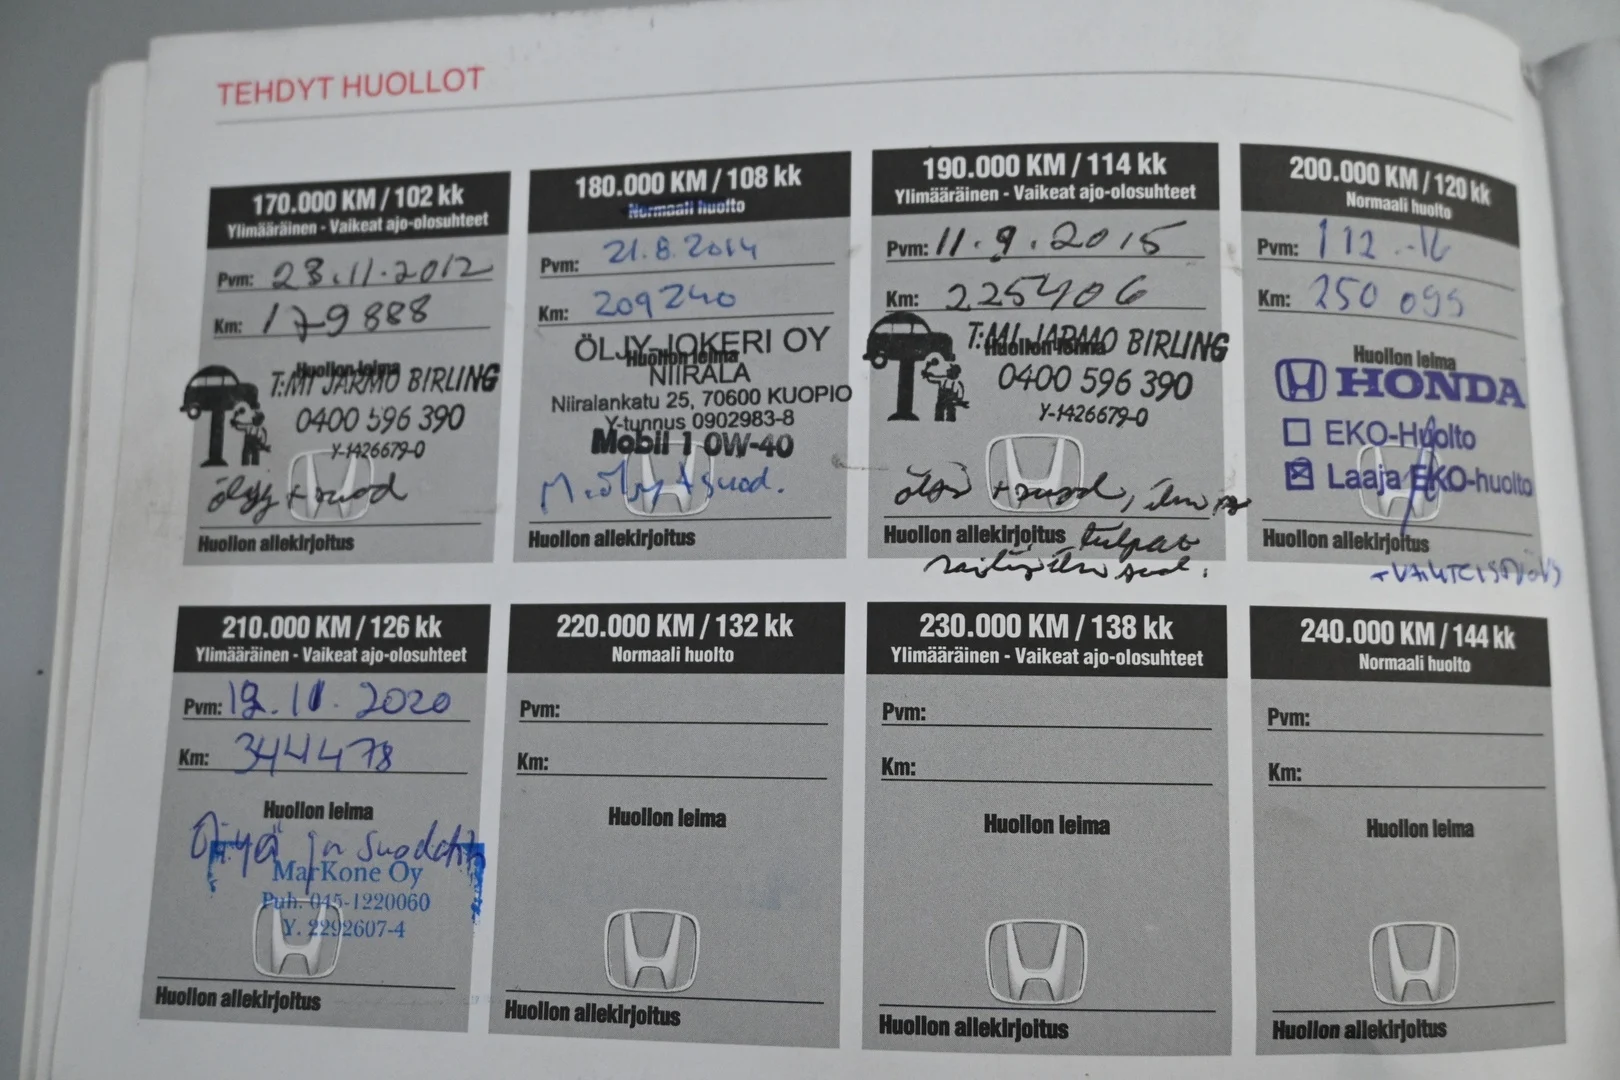 TEHDYT HUOLLOT
170.000 KM / 102 kk
Ylimääräinen - Vaikeat ajo-olosuhteet
Pvm: 23.11.2012
Km: 179888
Huollon leima
T:MI JARMO BIRLING
0400 596 390
Y-1426679-0
öljy + suod
Huollon allekirjoitus
180.000 KM / 108 kk
Normaali huolto
Pvm: 21.8.2014
Km: 209240
Huollon leima
ÖLJY-JOKERI OY
NIIRALA
Niiralankatu 25, 70600 KUOPIO
Y-tunnus 0902983-8
Mobil 1 0W-40
M.öljy + suod.
Huollon allekirjoitus
190.000 KM / 114 kk
Ylimääräinen - Vaikeat ajo-olosuhteet
Pvm: 11.9.2015
Km: 225406
Huollon leima
T:MI JARMO BIRLING
0400 596 390
Y-1426679-0
öljy + suod, ilm ja
Huollon allekirjoitus tulpat
raitis ilm suod.
200.000 KM / 120 kk
Normaali huolto
Pvm: 1 12.-16
Km: 250 095
Huollon leima
HONDA
EKO-Huolto
Laaja EKO-huolto
Huollon allekirjoitus
+VAIHTEISTOÖLJY
210.000 KM / 126 kk
Ylimääräinen - Vaikeat ajo-olosuhteet
Pvm: 12.11.2020
Km: 344478
Huollon leima
Öljyä ja suodatin
MarKone Oy
Puh. 045-1220060
Y. 2292607-4
Huollon allekirjoitus
220.000 KM / 132 kk
Normaali huolto
Pvm:
Km:
Huollon leima
Huollon allekirjoitus
230.000 KM / 138 kk
Ylimääräinen - Vaikeat ajo-olosuhteet
Pvm:
Km:
Huollon leima
Huollon allekirjoitus
240.000 KM / 144 kk
Normaali huolto
Pvm:
Km:
Huollon leima
Huollon allekirjoitus